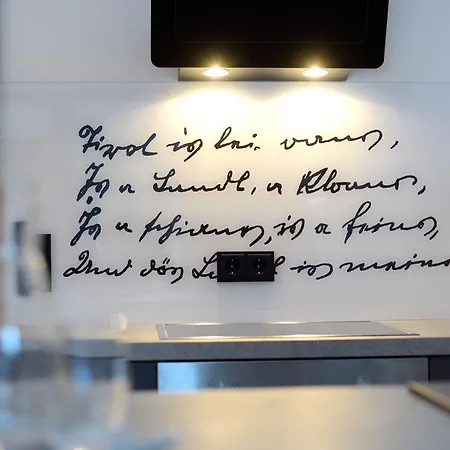 Tirol is lei oans,
Is a Landl, a kloans,
Is a schians, is a feins,
Und dös Landl is meins